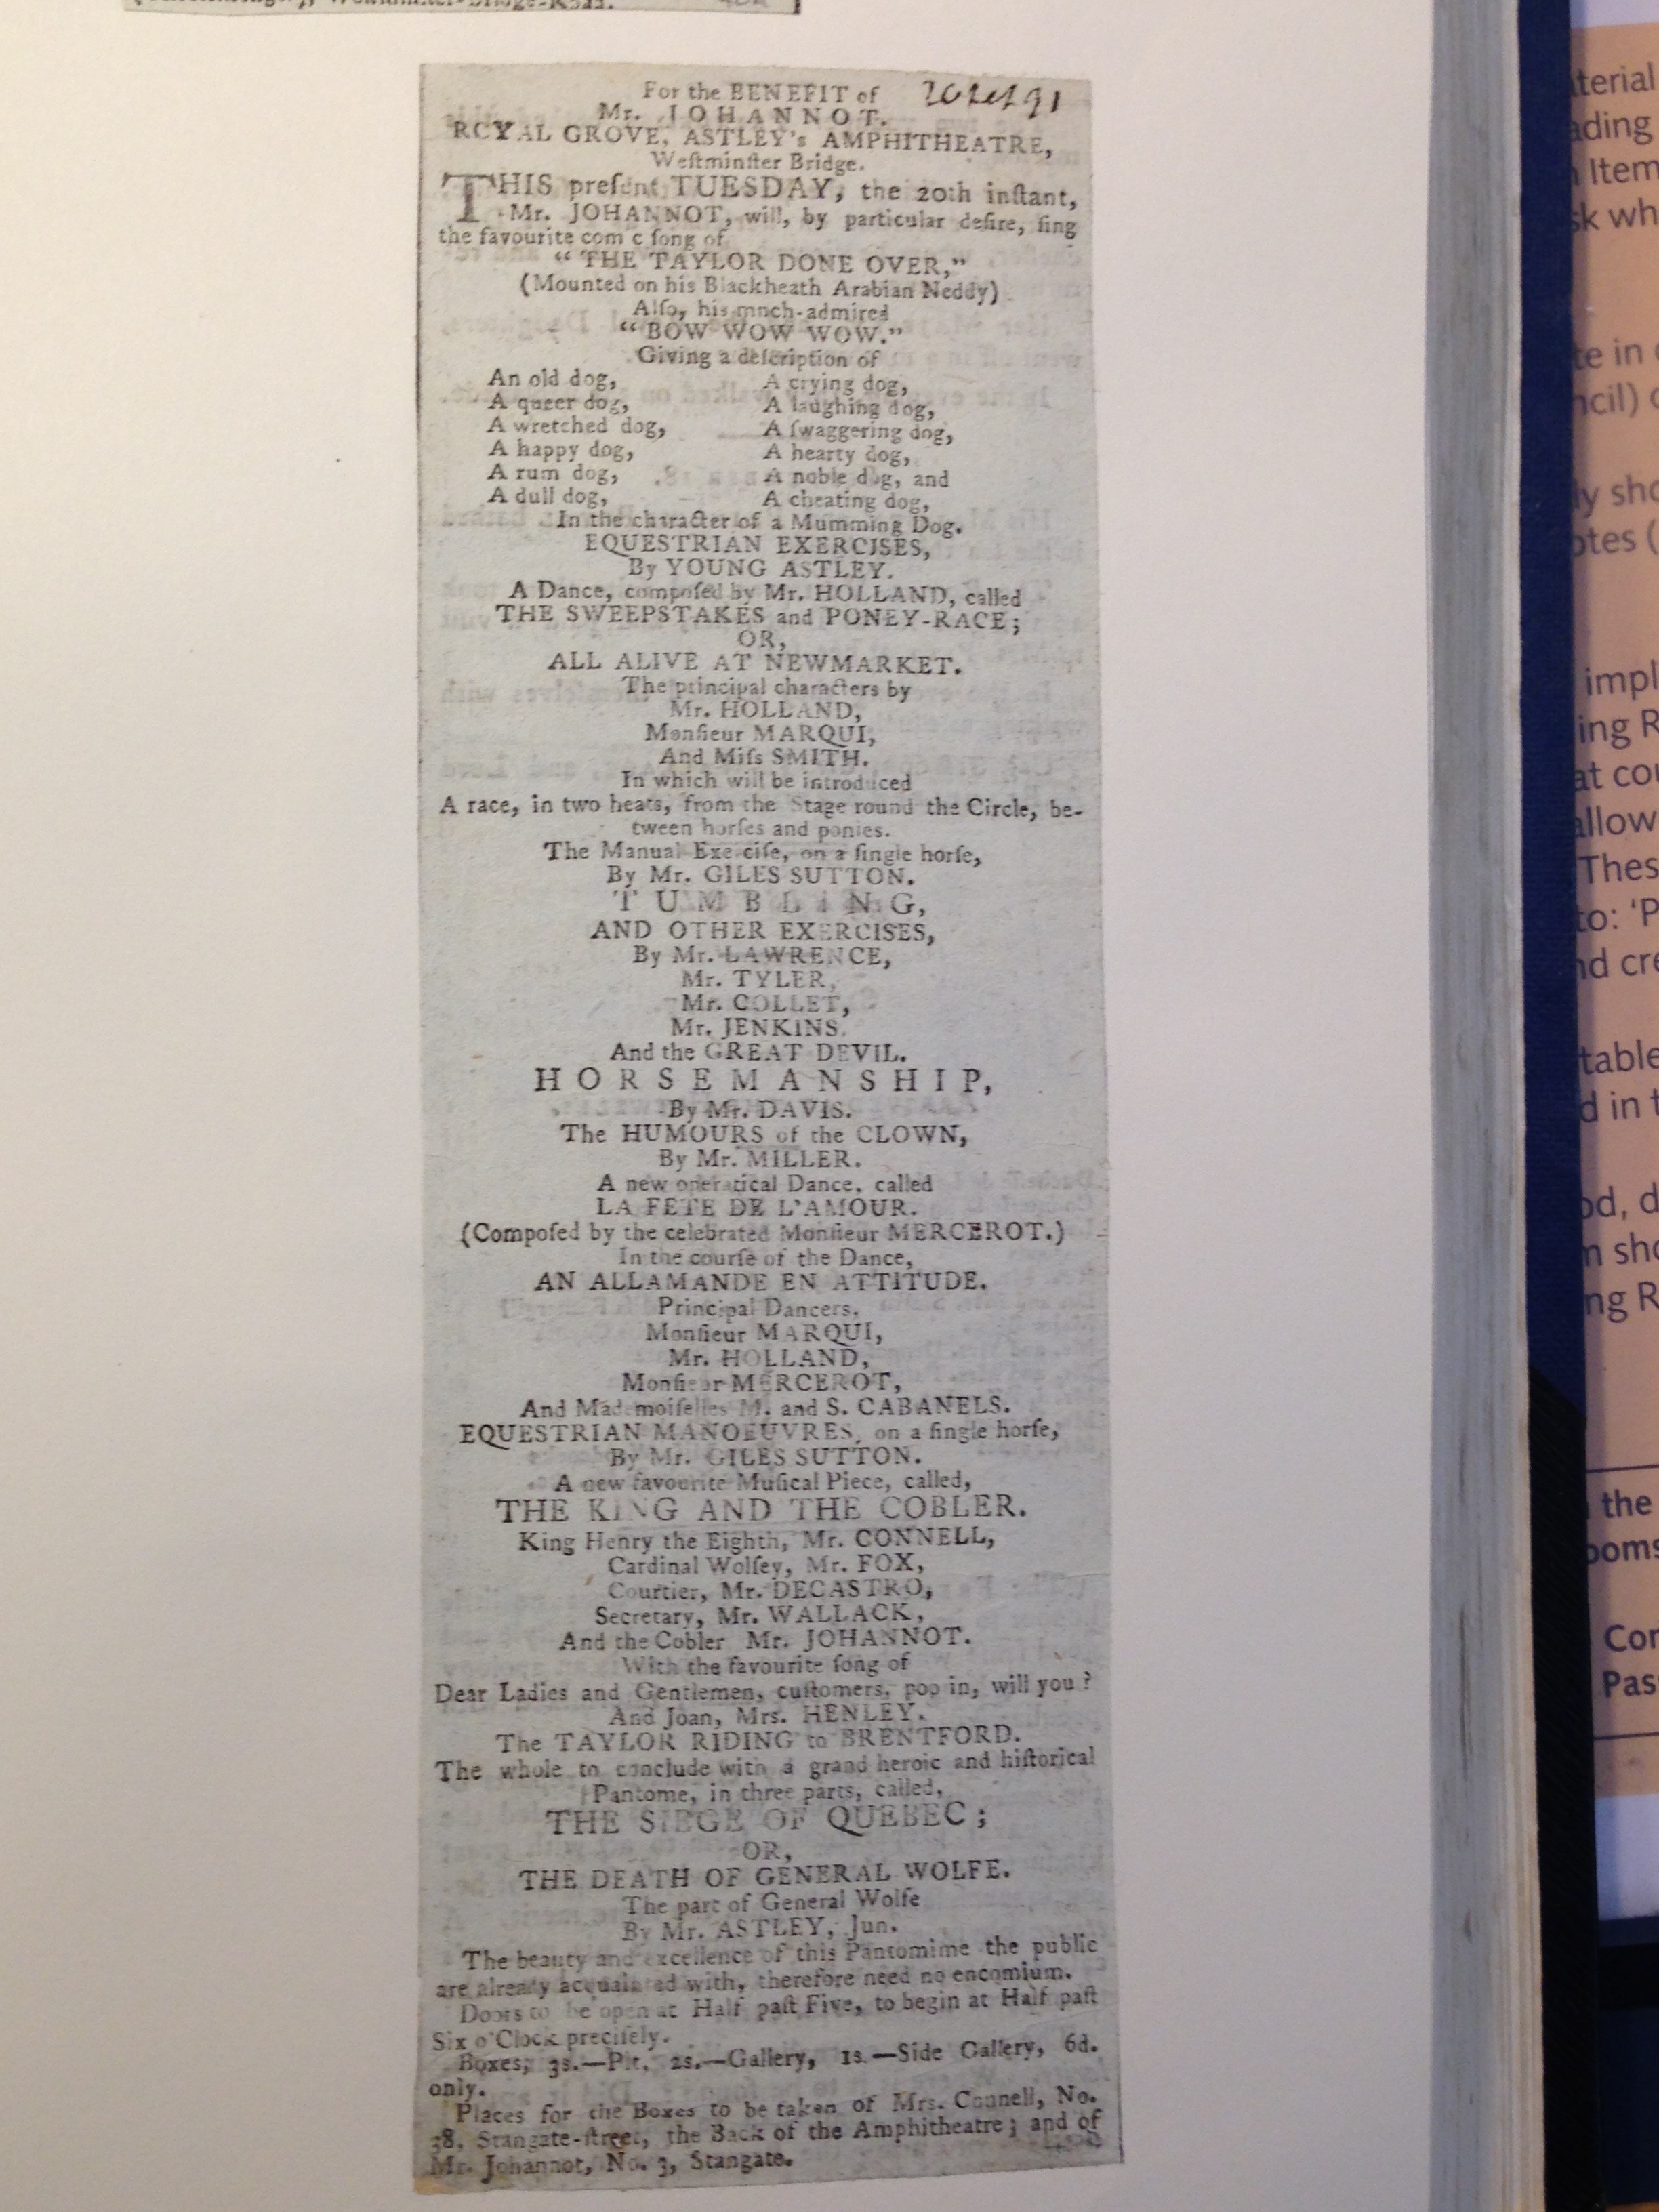 For the BENEFIT of
Mr. JOHANNOT.
ROYAL GROVE, ASTLEY's AMPHITHEATRE,
Weſtminſter Bridge.
THIS preſent TUESDAY, the 20th inſtant,
Mr. JOHANNOT, will, by particular deſire, ſing
the favourite com c ſong of
"THE TAYLOR DONE OVER,"
(Mounted on his Blackheath Arabian Neddy)
Alſo, his mnch-admired
"BOW WOW WOW."
Giving a deſcription of
An old dog, A crying dog,
A queer dog, A laughing dog,
A wretched dog, A ſwaggering dog,
A happy dog, A hearty dog,
A rum dog, A noble dog, and
A dull dog, A cheating dog,
In the character of a Mumming Dog.
EQUESTRIAN EXERCISES,
By YOUNG ASTLEY.
A Dance, compoſed by Mr. HOLLAND, called
THE SWEEPSTAKES and PONEY-RACE;
OR,
ALL ALIVE AT NEWMARKET.
The principal characters by
Mr. HOLLAND,
Monſieur MARQUI,
And Miſs SMITH.
In which will be introduced
A race, in two heats, from the Stage round the Circle, be-
tween horſes and ponies.
The Manual Exe ciſe, on a ſingle horſe,
By Mr. GILES SUTTON.
TUMBLING,
AND OTHER EXERCISES,
By Mr. LAWRENCE,
Mr. TYLER,
Mr. COLLET,
Mr. JENKINS.
And the GREAT DEVIL.
HORSEMANSHIP,
By Mr. DAVIS.
The HUMOURS of the CLOWN,
By Mr. MILLER.
A new operatical Dance, called
LA FETE DE L'AMOUR.
(Compoſed by the celebrated Monſieur MERCEROT.)
In the courſe of the Dance,
AN ALLAMANDE EN ATTITUDE.
Principal Dancers.
Monſieur MARQUI,
Mr. HOLLAND,
Monſieur MERCEROT,
And Mademoiſelles M. and S. CABANELS.
EQUESTRIAN MANOEUVRES, on a ſingle horſe,
By Mr. GILES SUTTON.
A new favourite Muſical Piece, called,
THE KING AND THE COBLER.
King Henry the Eighth, Mr. CONNELL,
Cardinal Wolſey, Mr. FOX,
Courtier, Mr. DECASTRO,
Secretary, Mr. WALLACK,
And the Cobler Mr. JOHANNOT.
With the favourite ſong of
Dear Ladies and Gentlemen, cuſtomers, pop in, will you?
And Joan, Mrs. HENLEY.
The TAYLOR RIDING to BRENTFORD.
The whole to conclude with a grand heroic and hiſtorical
Pantome, in three parts, called,
THE SIEGE OF QUEBEC;
OR,
THE DEATH OF GENERAL WOLFE.
The part of General Wolfe
By Mr. ASTLEY, Jun.
The beauty and excellence of this Pantomime the public
are already acquainted with, therefore need no encomium.
Doors to be open at Half paſt Five, to begin at Half paſt
Six o'Clock preciſely.
Boxes, 3s.—Pit, 2s.—Gallery, 1s.—Side Gallery, 6d.
only.
Places for the Boxes to be taken of Mrs. Connell, No.
38, Stangate-ſtreet, the Back of the Amphitheatre; and of
Mr. Johannot, No. 3, Stangate.